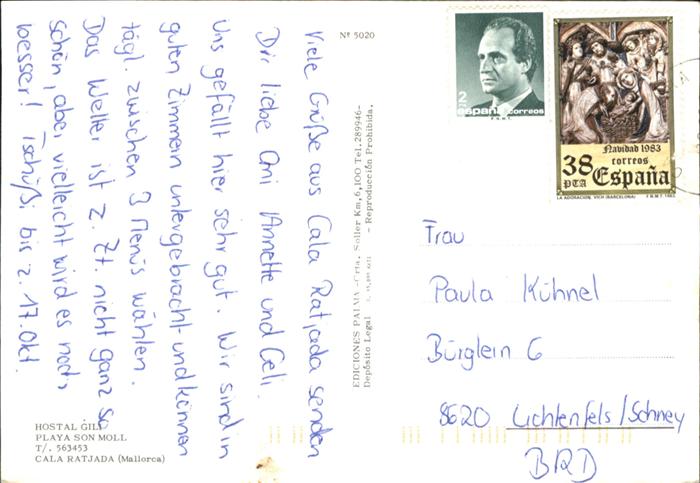 Viele Grüße aus Cala Ratjada senden
Dir liebe Omi Annette und Geli.
Uns gefällt hier sehr gut. Wir sind in
guten Zimmern untergebracht und können
tägl. zwischen 3 Menüs wählen.
Das Wetter ist z. Zt. nicht ganz so
schön, aber vielleicht wird es noch
besser! Tschüßi bis z. 17. Okt.
HOSTAL GILI
PLAYA SON MOLL
T/. 563453
CALA RATJADA (Mallorca)
Nº 5020
EDICIONES PALMA -Crta. Soller Km,6,100 Tel.289946-
Depósito Legal - Reproducción Prohibida.
2
españa correos
F.N.M.T.
Navidad 1983
38 correos
PTA España
LA ADORACION, VICH (BARCELONA) F.N.M.T. 1983
Frau
Paula Kühnel
Bürglein 6
8620 Lichtenfels/Schney
BRD